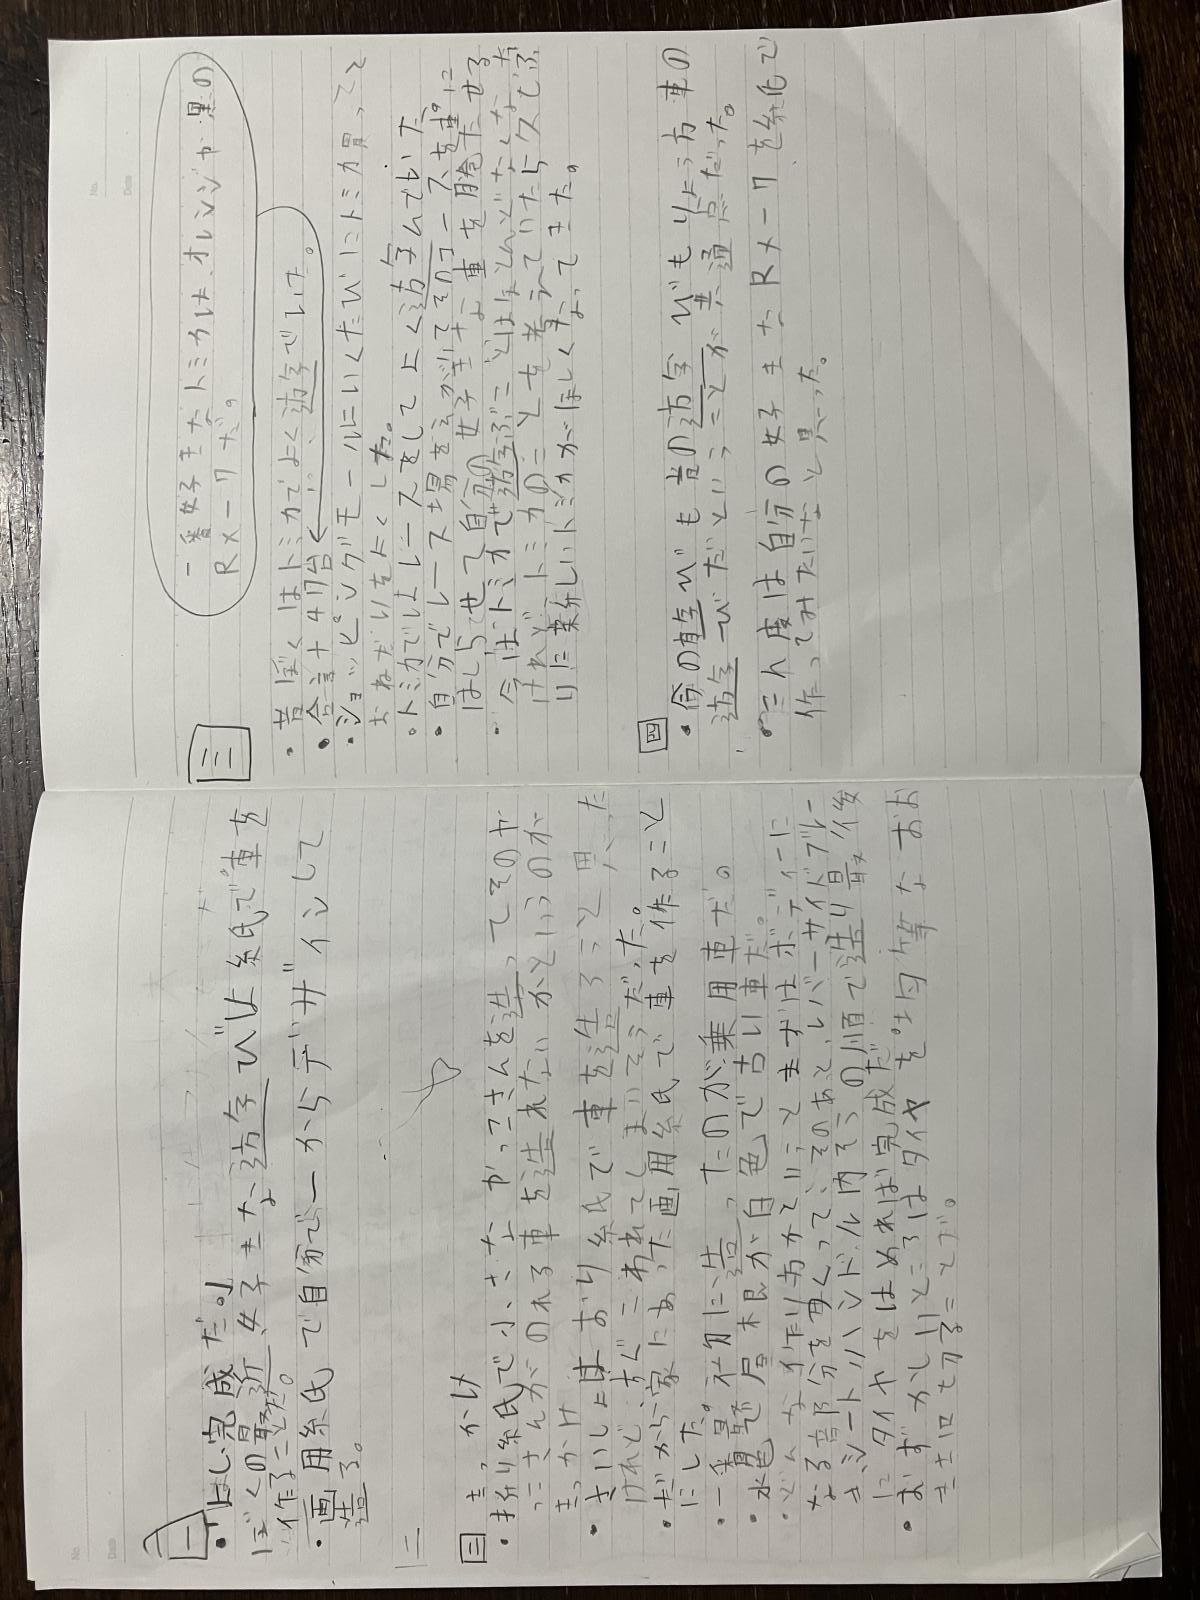 一
・「よし完成だ。」
ぼくの最近好きな遊びは紙で車を
作ることだ。
・画用紙で自分で一からデザインして
造る。
二
きっかけ
・折り紙で小さなかっこさんを造ってそのや
っこさんがのれる車を造れないかというのが
きっかけ
・さいしょはおり紙で車を造ろうと思った
けれど、すぐこわれてしまいそうだった。
・だから家にあった画用紙で車を作ること
にした。
・一番最初に造ったのが乗用車だ。
・水色で屋根が白色で古い車だ。
・どんな作り方かというとまずはボディーに
なる部分を造って、そのあと、レバーサイドブレー
キ、シート、ハンドル、内そうの順で造り最後
にタイヤをはめれば完成だ。
・むずかしいところはタイヤを均等なおお
きさに切ることだ。
三
一番好きなトミカは、オレンジや黒の
Rメークだ。
・昔ぼくはトミカでよく遊んでいた。
・合計47台
・ショッピングモールにいくたびにトミカ買ってと
おねだりをよくした。
・トミカではレースをしてよく遊んでいた
・自分でレース場をえがいてそのコースを車に
はしらせて自分の好きな車を勝たせる
・今はトミカで遊ぶことはほとんどなくなった
けれど、トミカのことを考えていたら久しぶ
りに新しいトミカがほしくなってきた。
四
・今の遊びも昔の遊びもりょう方車の
遊びだということが共通点だった。
・こん度は自分の好きなRメークを紙で
作ってみたいなと思った。